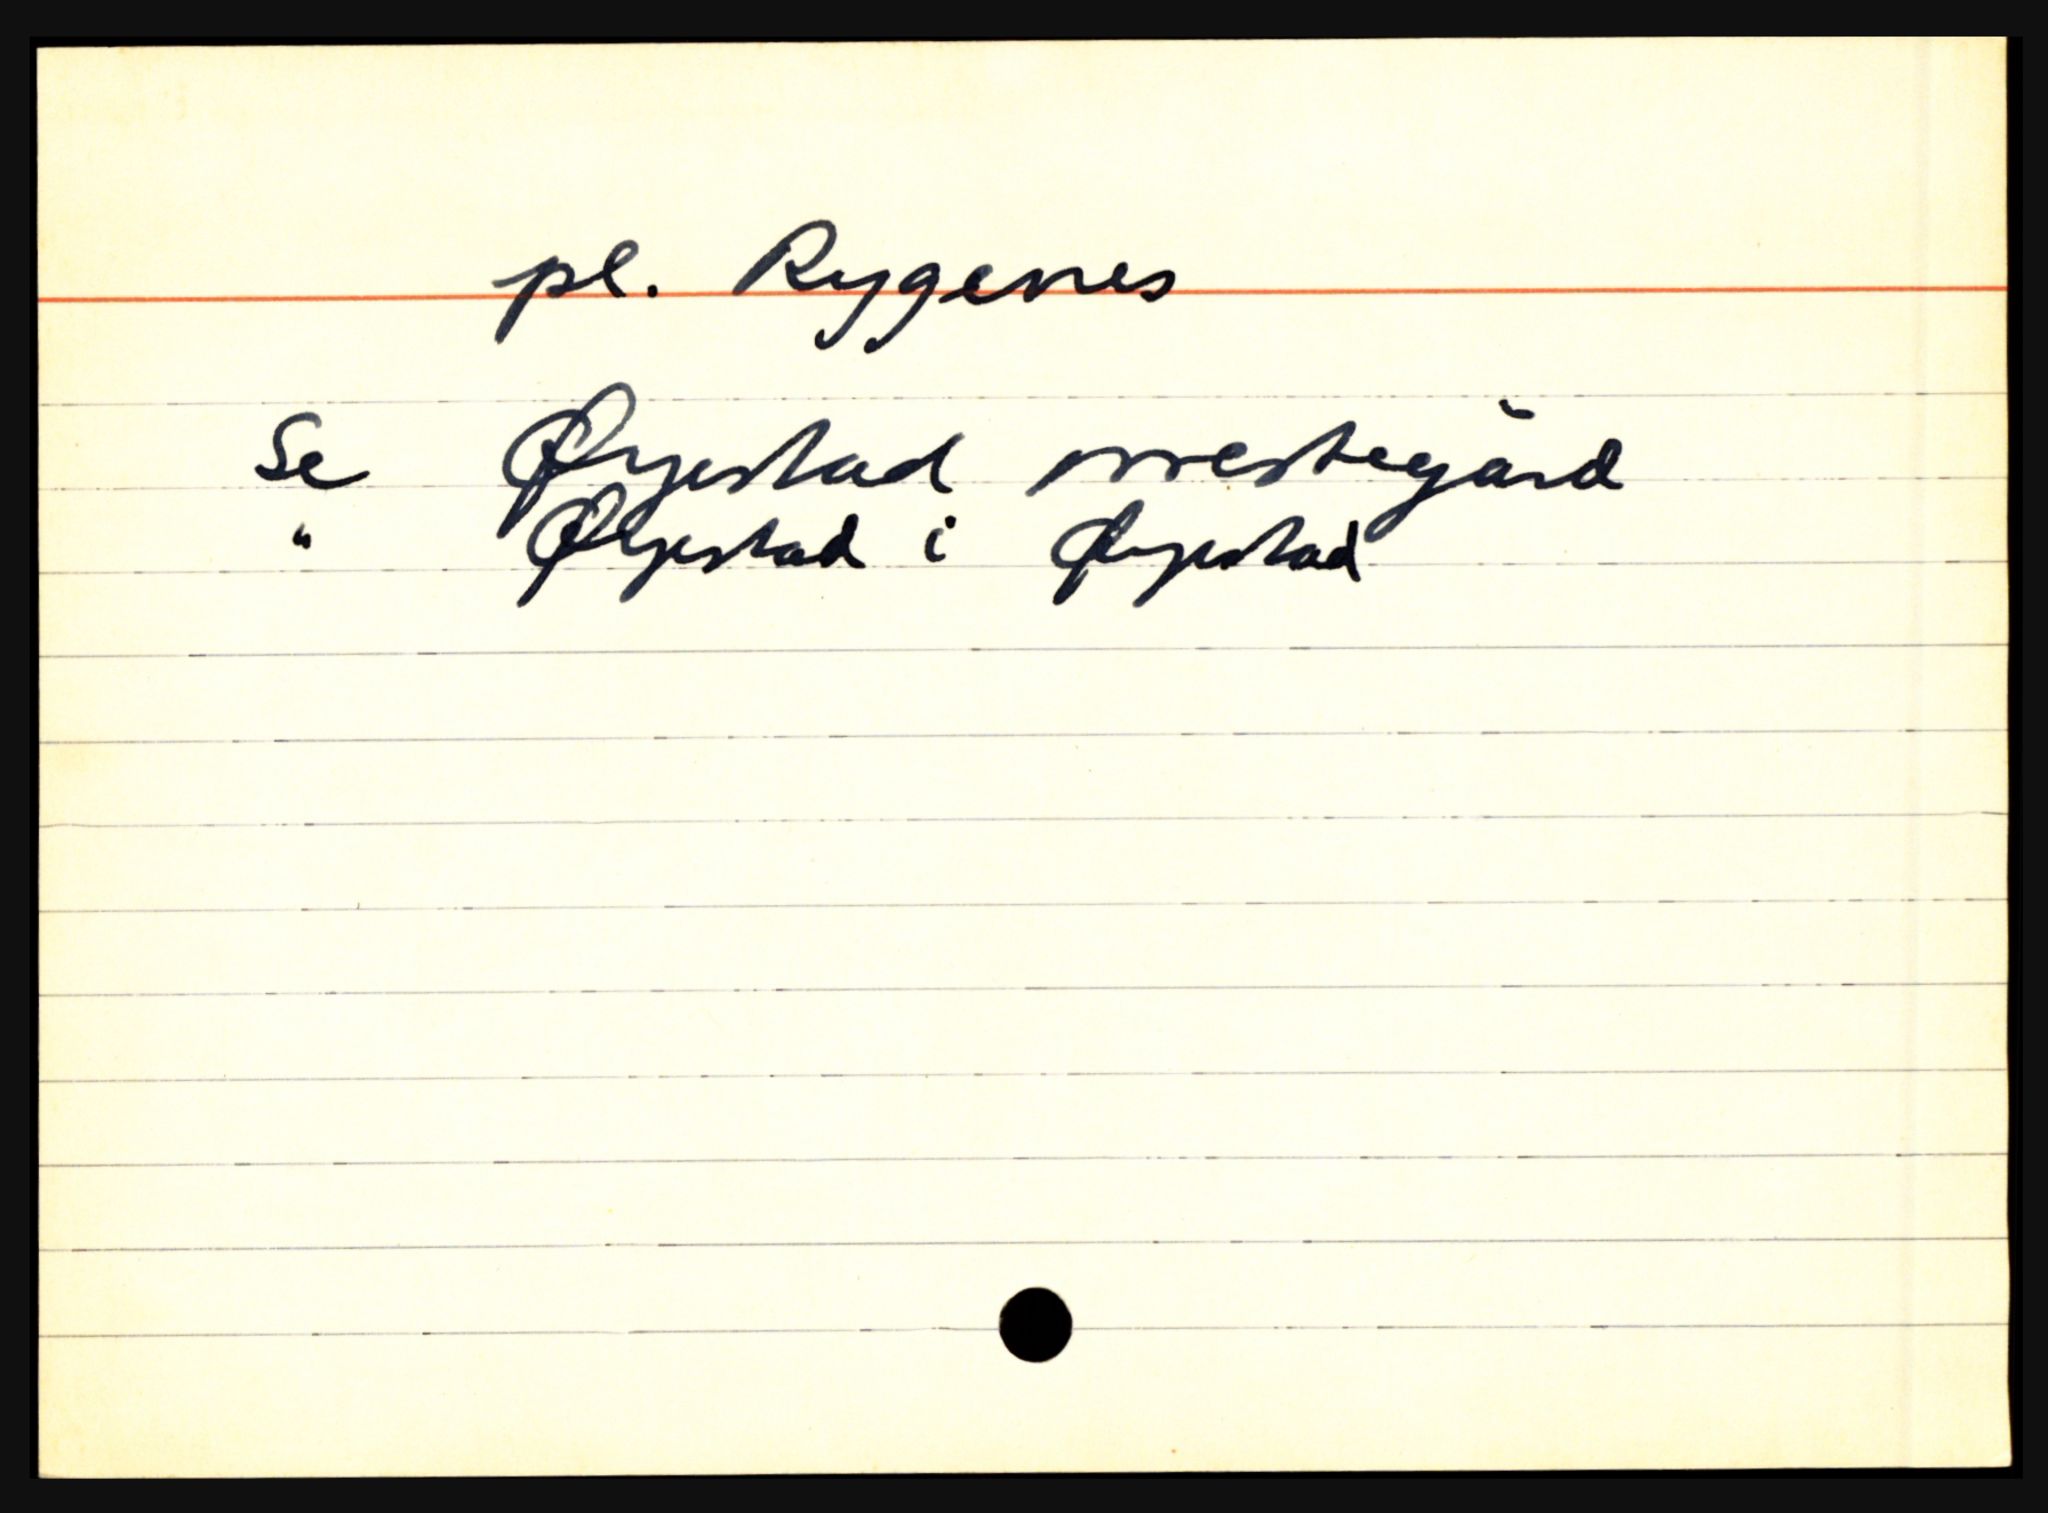 pl. Rygenes
Se Øyestad prestegård
" Øyestad i Øyestad